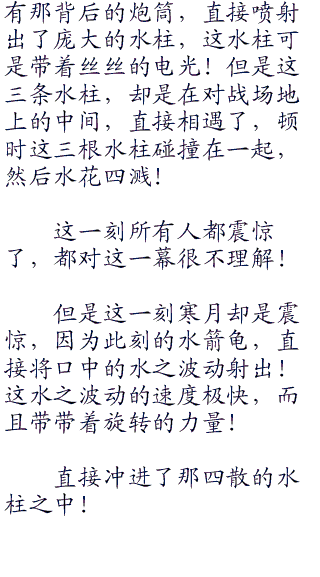 有那背后的炮筒，直接喷射
出了庞大的水柱，这水柱可
是带着丝丝的电光！但是这
三条水柱，却是在对战场地
上的中间，直接相遇了，顿
时这三根水柱碰撞在一起，
然后水花四溅！
这一刻所有人都震惊
了，都对这一幕很不理解！
但是这一刻寒月却是震
惊，因为此刻的水箭龟，直
接将口中的水之波动射出！
这水之波动的速度极快，而
且带带着旋转的力量！
直接冲进了那四散的水
柱之中！